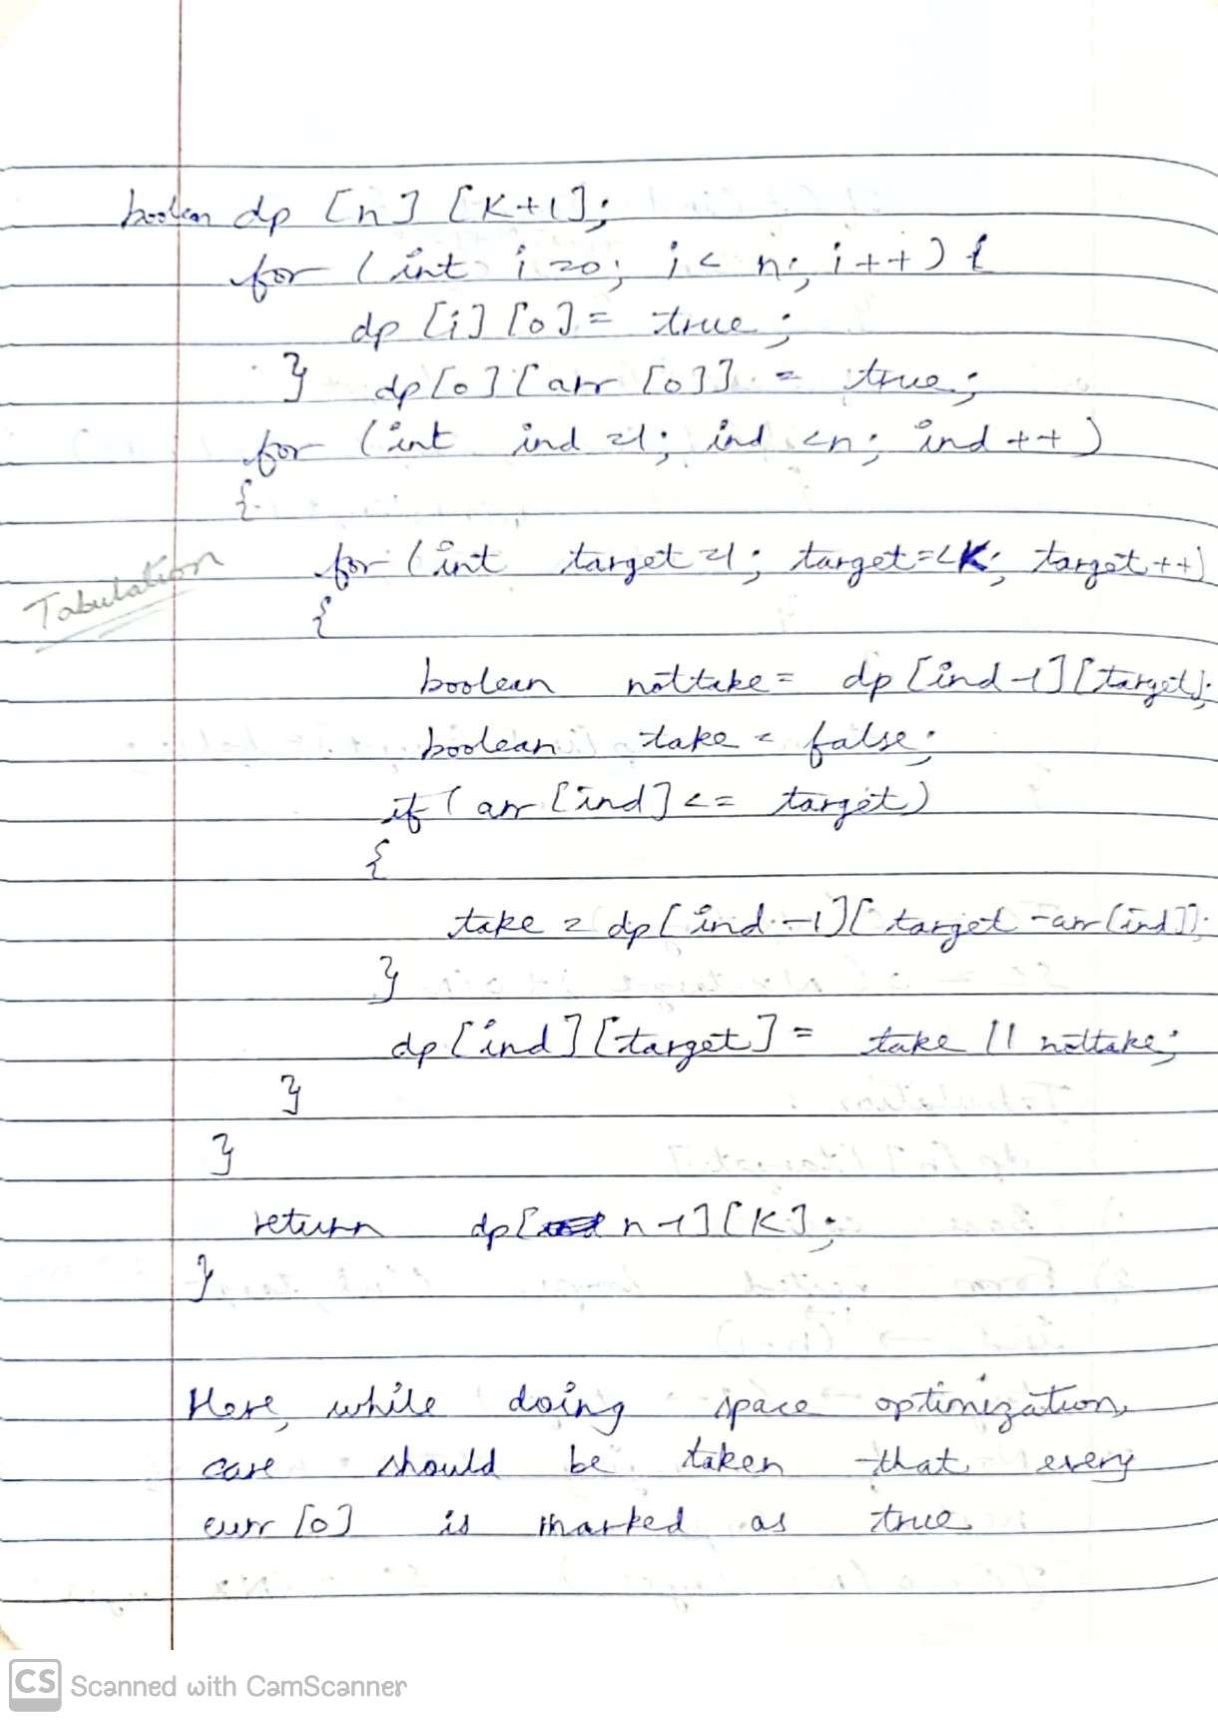 boolean dp [n] [K+1];
for (int i=0; i< n; i++) {
dp [i] [0] = true;
} dp[0][arr [0]] = true;
for (int ind =1; ind <n; ind ++)
{
Tabulation
for (int target =1; target=<K; target++)
{
boolean nottake = dp [ind-1][target];
boolean take = false;
if (arr [ind] <= target)
{
take = dp[ind-1][target -arr[ind]];
}
dp [ind] [target] = take || nottake;
}
}
return dp[n-1][K];
}
Here, while doing space optimization,
care should be taken that every
curr [0] is marked as true
CS Scanned with CamScanner